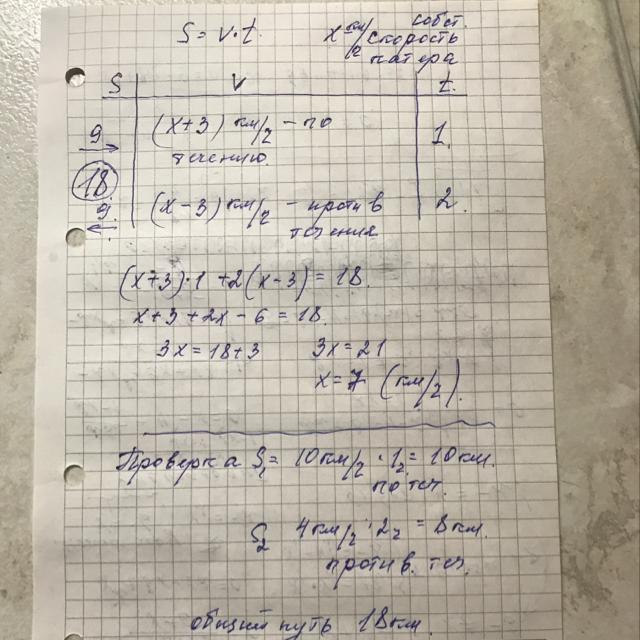 S = v·t. x км/ч собст.
скорость
катера
S v t.
9 (x+3) км/ч - по 1.
течению.
18
9 (x-3) км/ч - против 2.
течения
(x+3)·1 + 2(x-3) = 18.
x+3+2x-6 = 18.
3x = 18+3 3x = 21
x = 7 (км/ч).
Проверка S₁ = 10 км/ч · 1ч = 10 км.
по теч.
S₂ 4 км/ч · 2ч = 8 км.
против. теч.
общий путь 18 км.